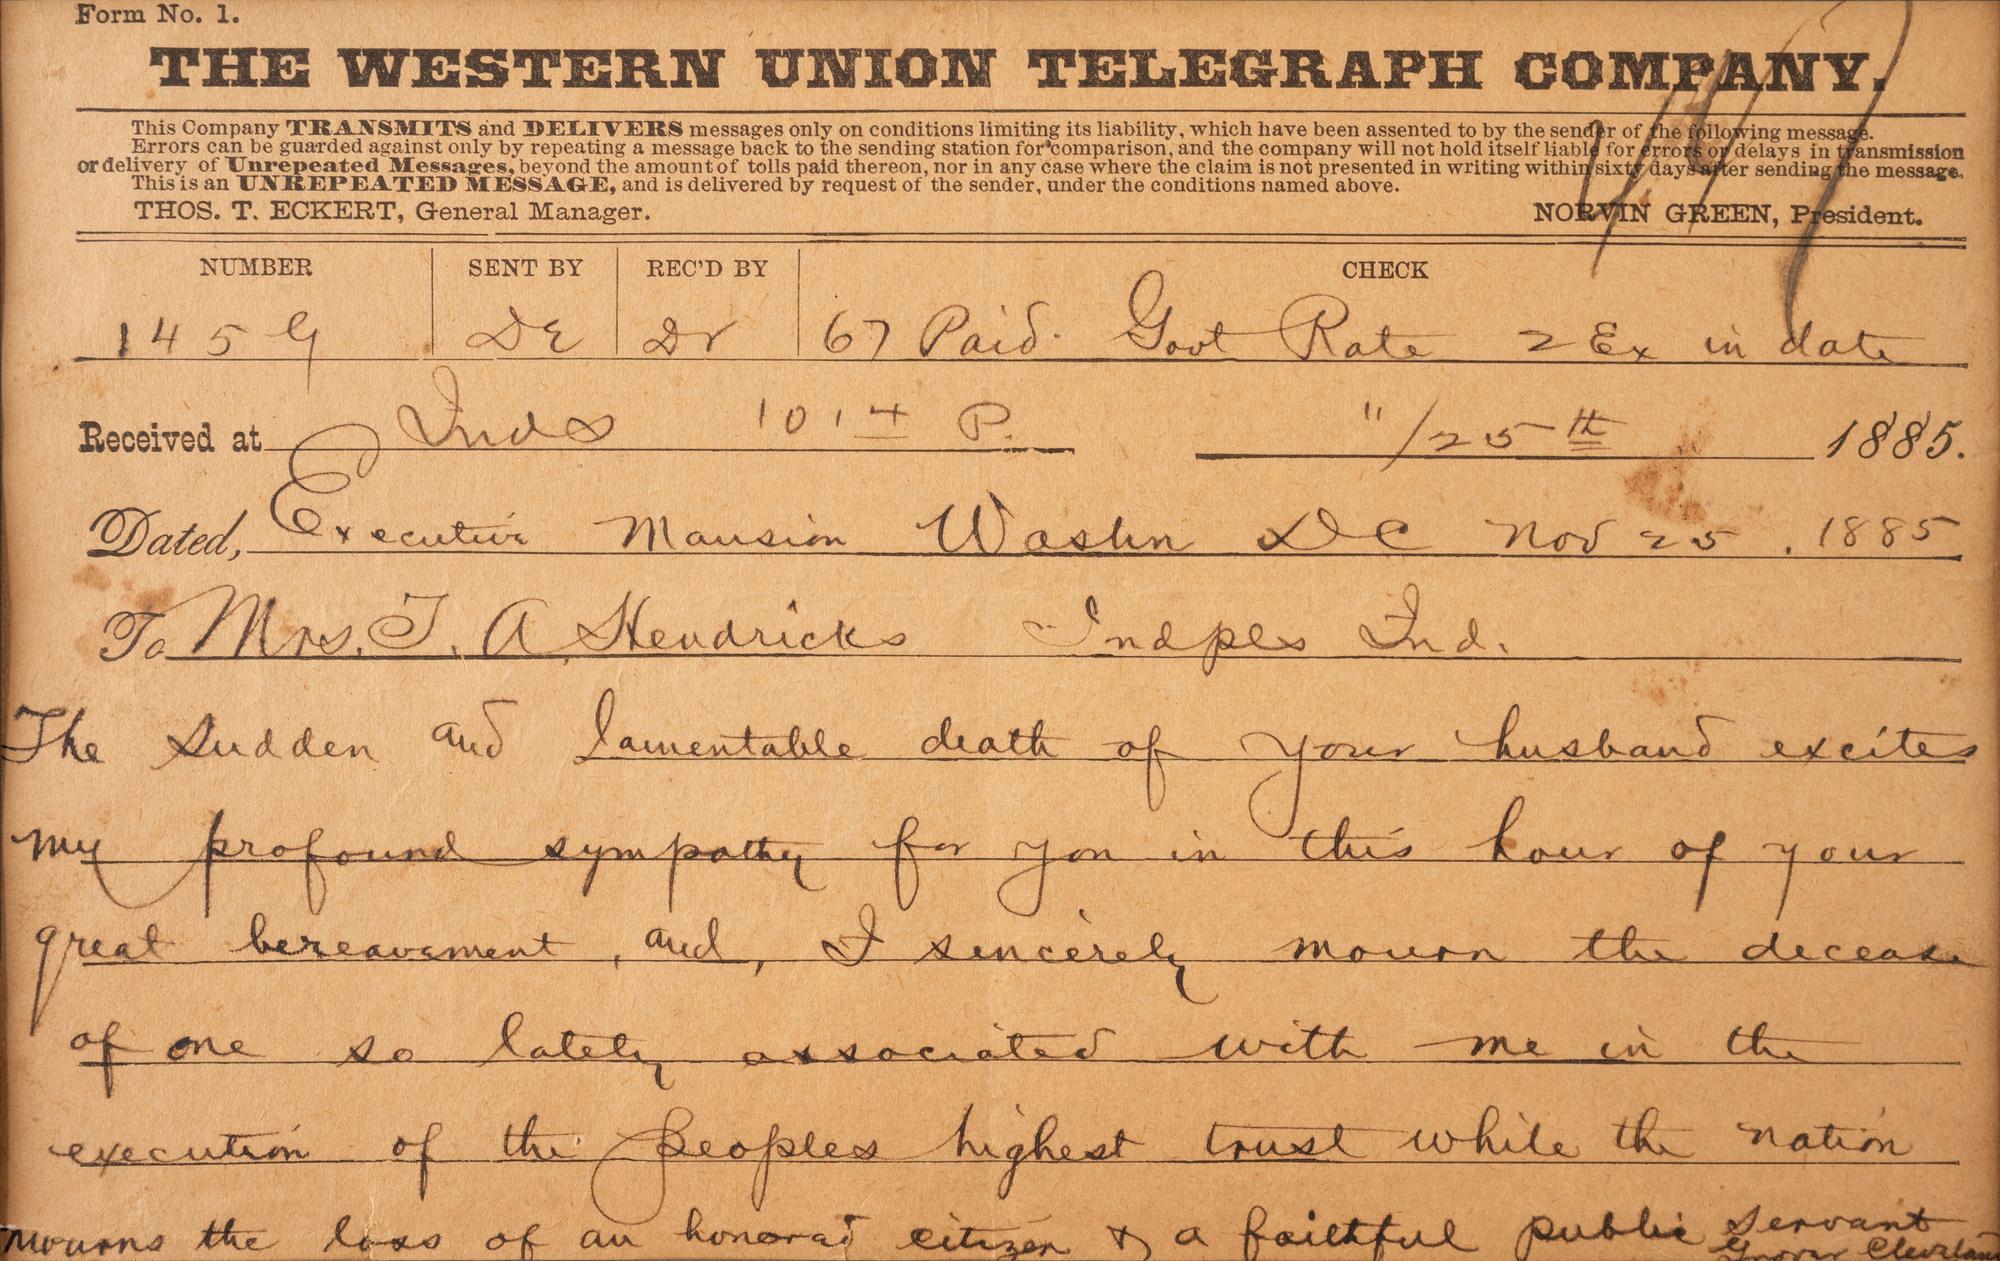 Form No. 1.
THE WESTERN UNION TELEGRAPH COMPANY.
This Company TRANSMITS and DELIVERS messages only on conditions limiting its liability, which have been assented to by the sender of the following message.
Errors can be guarded against only by repeating a message back to the sending station for comparison, and the company will not hold itself liable for errors or delays in transmission
or delivery of Unrepeated Messages, beyond the amount of tolls paid thereon, nor in any case where the claim is not presented in writing within sixty days after sending the message.
This is an UNREPEATED MESSAGE, and is delivered by request of the sender, under the conditions named above.
THOS. T. ECKERT, General Manager. NORVIN GREEN, President.
NUMBER SENT BY REC'D BY CHECK
145 G DE Dr 67 Paid. Govt Rate 2 Ex in date
Received at Inds 1014 P. 11/25th 1885.
Dated, Executive Mansion Washn DC Nov 25. 1885
To Mrs. T. A. Hendricks Indpls Ind.
The sudden and lamentable death of your husband excites
my profound sympathy for you in this hour of your
great bereavement, and, I sincerely mourn the decease
of one so lately associated with me in the
execution of the peoples highest trust while the nation
mourns the loss of an honored citizen & a faithful public servant
Grover Cleveland